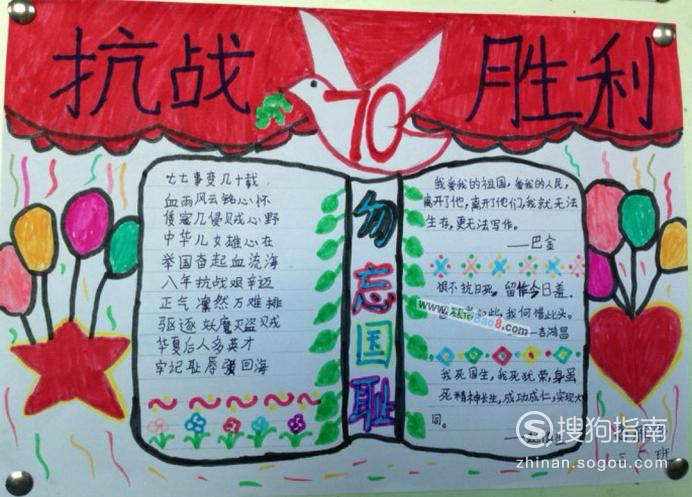 抗战 70 胜利
七七事变几十载
血雨风云铭心怀
倭寇几侵贼心野
中华儿女雄心在
举国奋起血流海
八年抗战艰辛迈
正气凛然万难排
驱逐妖魔灭盗贼
华夏后人多英才
牢记耻辱爱回海
勿忘国耻
我爱我的祖国,爱我的人民,
离开了他,离开了他们,我就无法
生存,更无法写作。
——巴金
恨不抗日死,留作今日羞。
我何惜此头。
吉鸿昌
我死国生,我死犹荣,身虽
死精神长生,成功成仁,实现大
同。
班
搜狗指南
zhinan.sogou.com